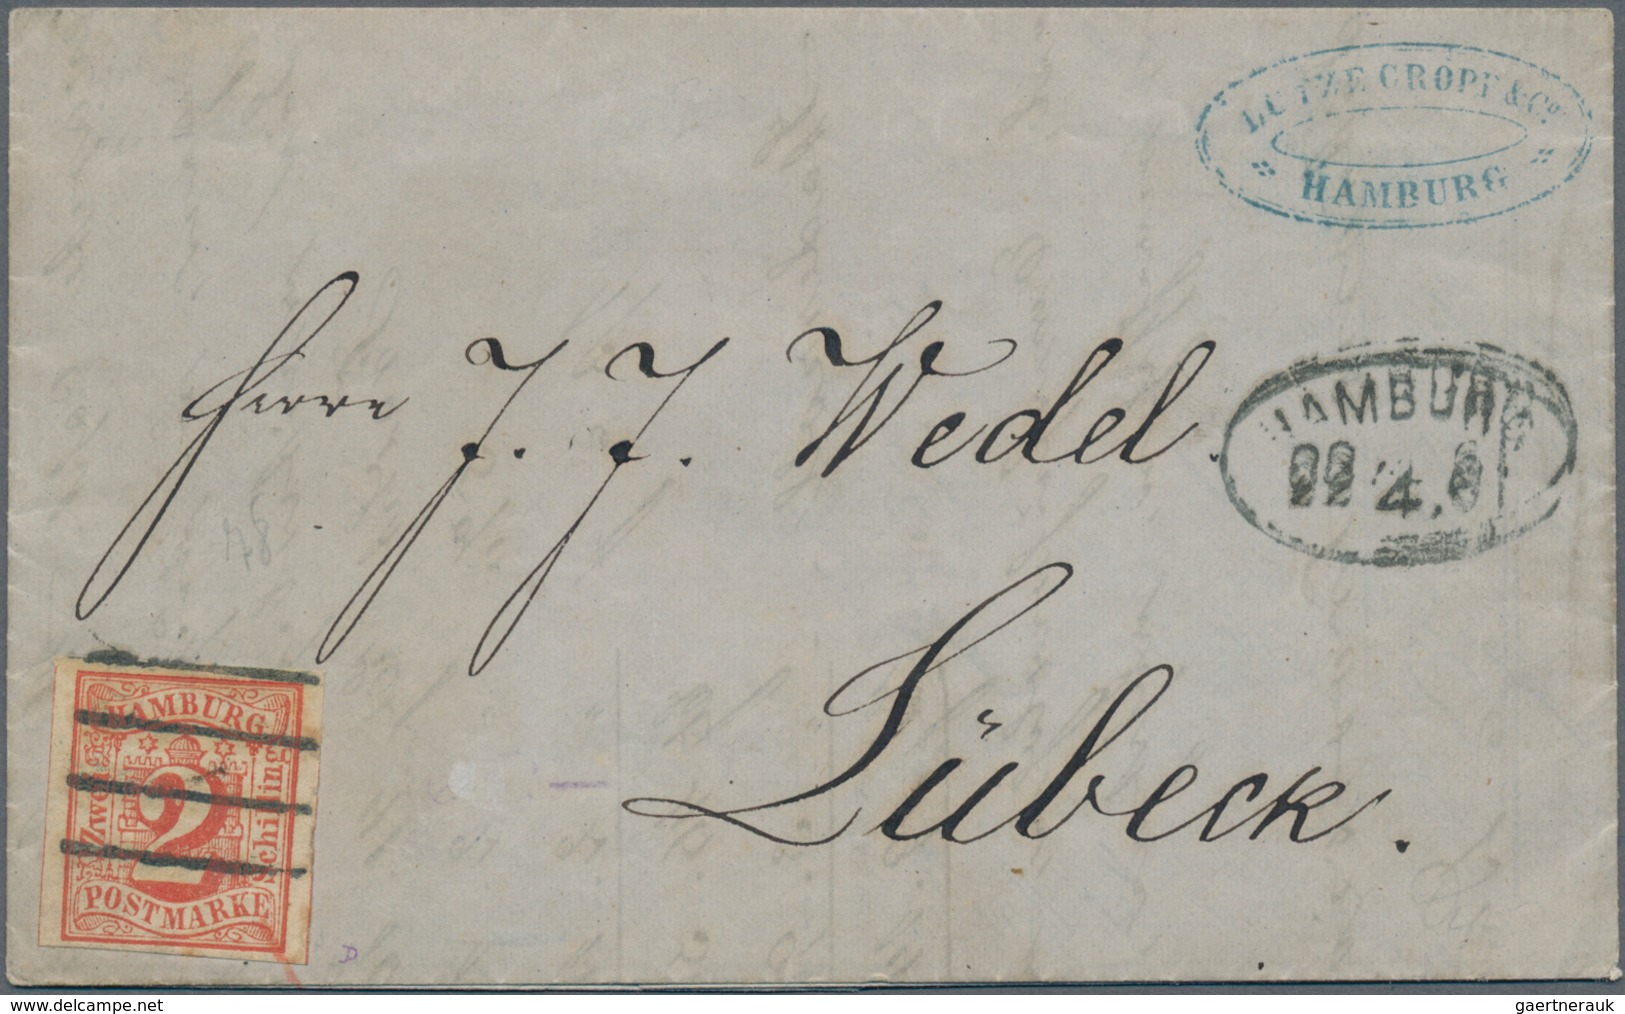 LUTZE GROPP & Co.
HAMBURG
Herrn J. J. Wedel.
HAMBURG
22 4.
Lübeck.
78
HAMBURG
Zwei
2
Schilling
POSTMARKE
D
delcampe.net
gaertnerauk